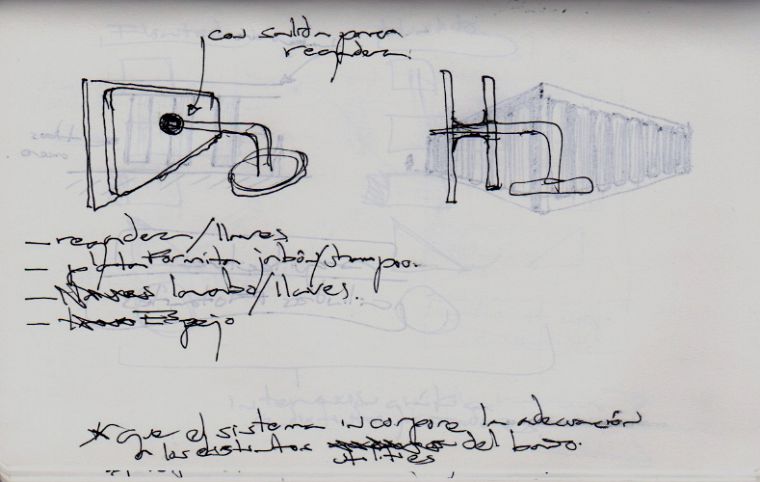 con salida para
regadera.
- regadera/llaves
- plataformita jabón/shampo.
- lavabo/llaves.
- Espejo
* que el sistema incorpore la adecuación
a las distintos utilities del baño.